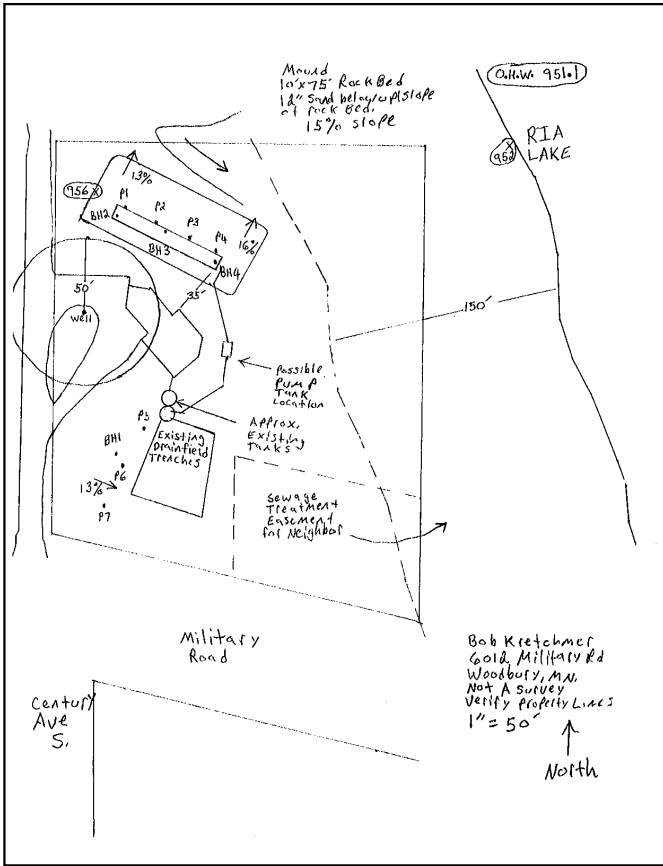 Mound
10'x75' Rock Bed
12" Sand below upslope
of rock Bed.
15% slope
O.H.W. 951.1
952
RIA
LAKE
13%
956
P1
P2
P3
P4
BH2
BH3
BH4
16%
50'
well
35'
150'
Possible
Pump
Tank
Location
Approx.
Existing
Tanks
P5
BH1
P6
13%
P7
Existing
Drainfield
Trenches
Sewage
Treatment
Easement
for Neighbor
Military
Road
Century
Ave
S.
Bob Kretchmer
Military Rd
Woodbury, MN.
Not A survey
Verify Property Lines
1" = 50'
North